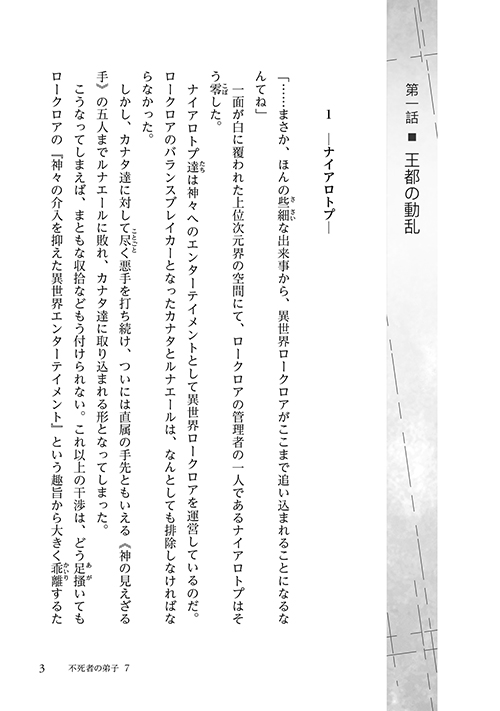 第一話■王都の動乱
1 ―ナイアロトプ―
「……まさか、ほんの些細な出来事から、異世界ロークロアがここまで追い込まれることになるな
んてね」
一面が白に覆われた上位次元界の空間にて、ロークロアの管理者の一人であるナイアロトプはそ
う零した。
ナイアロトプ達は神々へのエンターテイメントとして異世界ロークロアを運営しているのだ。
ロークロアのバランスブレイカーとなったカナタとルナエールは、なんとしても排除しなければな
らなかった。
しかし、カナタ達に対して尽く悪手を打ち続け、ついには直属の手先ともいえる《神の見えざる
手》の五人までルナエールに敗れ、カナタ達に取り込まれる形となってしまった。
こうなってしまえば、まともな収拾などもう付けられない。これ以上の干渉は、どう足掻いても
ロークロアの『神々の介入を抑えた異世界エンターテイメント』という趣旨から大きく乖離するた
3 不死者の弟子 7